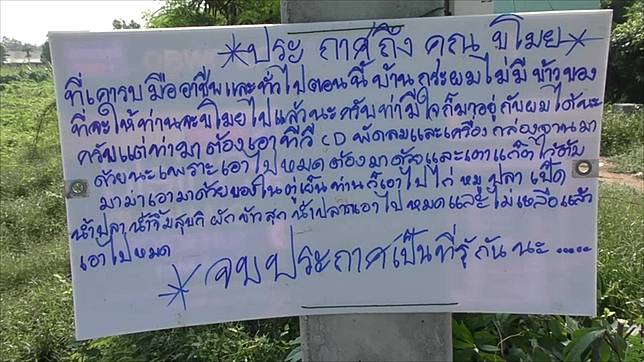 *ประกาศถึง คุณ ขโมย*
ที่เคารบ มืออาชีพและทั่วไปตอนนี้ บ้าน กระผมไม่มี ข้าวของ
ที่จะให้ท่านจะขโมยไปแล้วนะ ครับถ้ามีใจก็มาอยู่กับผมได้นะ
ครับแต่ถ้ามาต้องเอาทีวี CD พัดลมและเครื่อง กล่องจานมา
ด้วยนะเพราะเอาไปหมดต้องมาด้วยและเตาแก๊ต
มาม่าเอามาด้วยของในตู่เย็นท่านก็เอาไปไก่ หมู ปลา เป็ด
น้ำปลา น้ำจิ้มสุขกี ผัก ข้าวสุก น้ำปลาเอาไปหมดและไม่เหลือแล้ว
เอาไปหมด
*จบประกาศเป็นที่รู้กันนะ.....